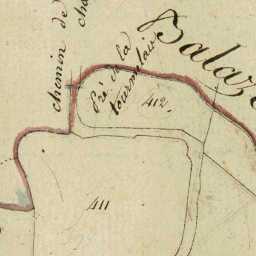 chemin de
cha
Pré de la
Balaz
412.
411